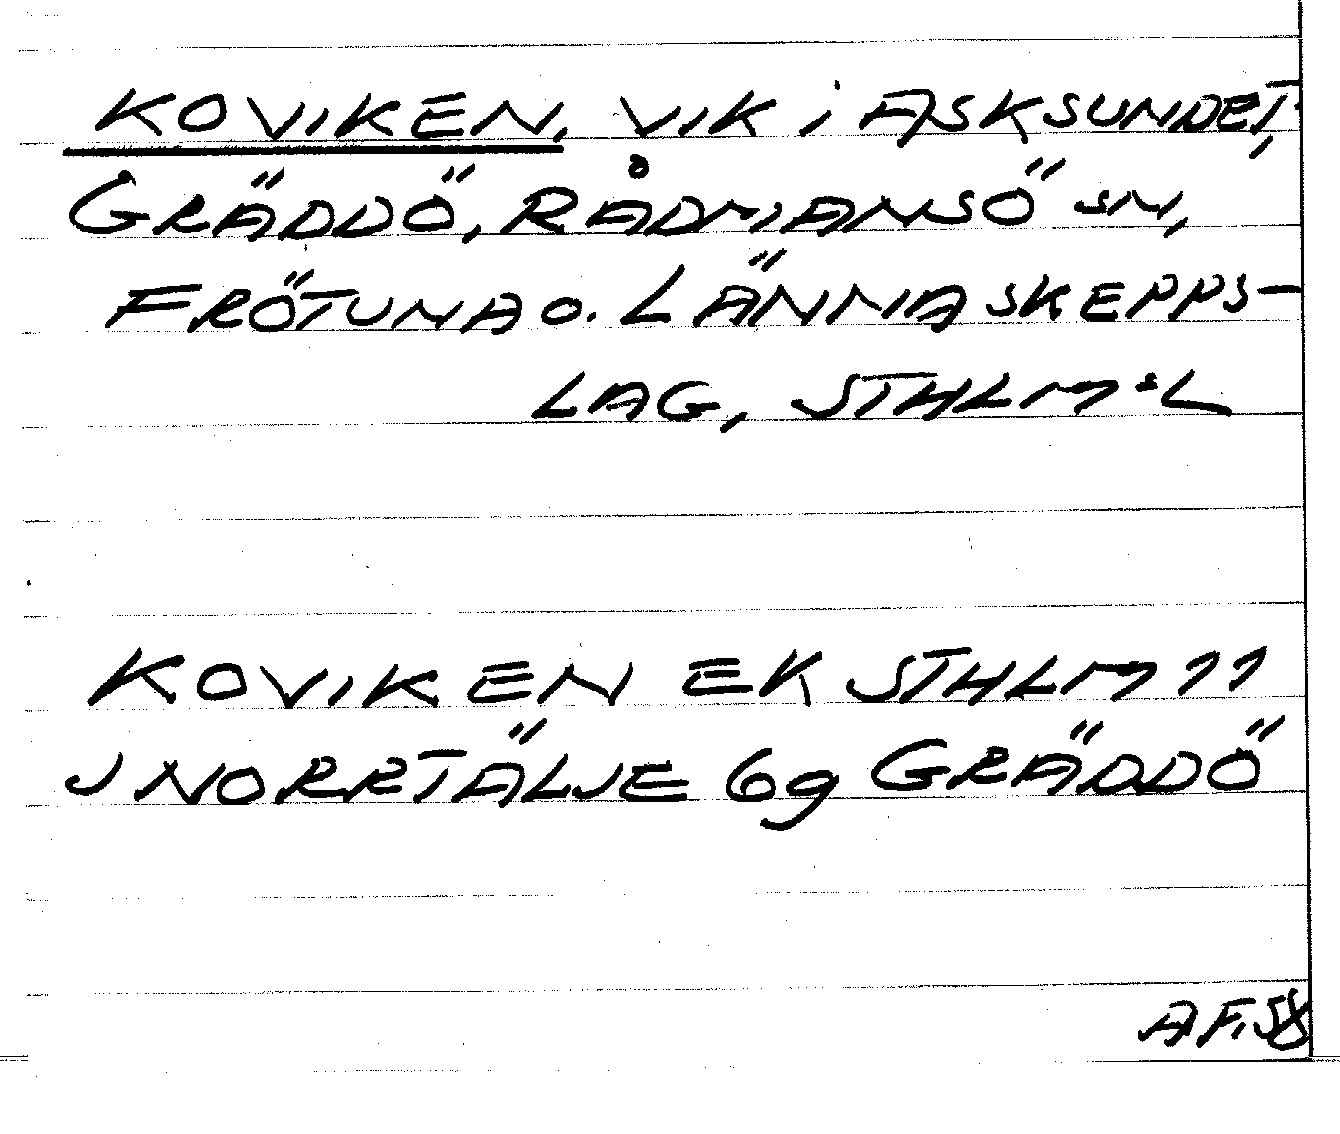 KOVIKEN, VIK i ASKSUNDET,
GRÄDDÖ, RÅDMANSÖ SN,
FRÖTUNA O. LÄNNA SKEPPS-
LAG, STHLMS L
KOVIKEN EK STHLM 11
J NORRTÄLJE 6g GRÄDDÖ
AF, 58